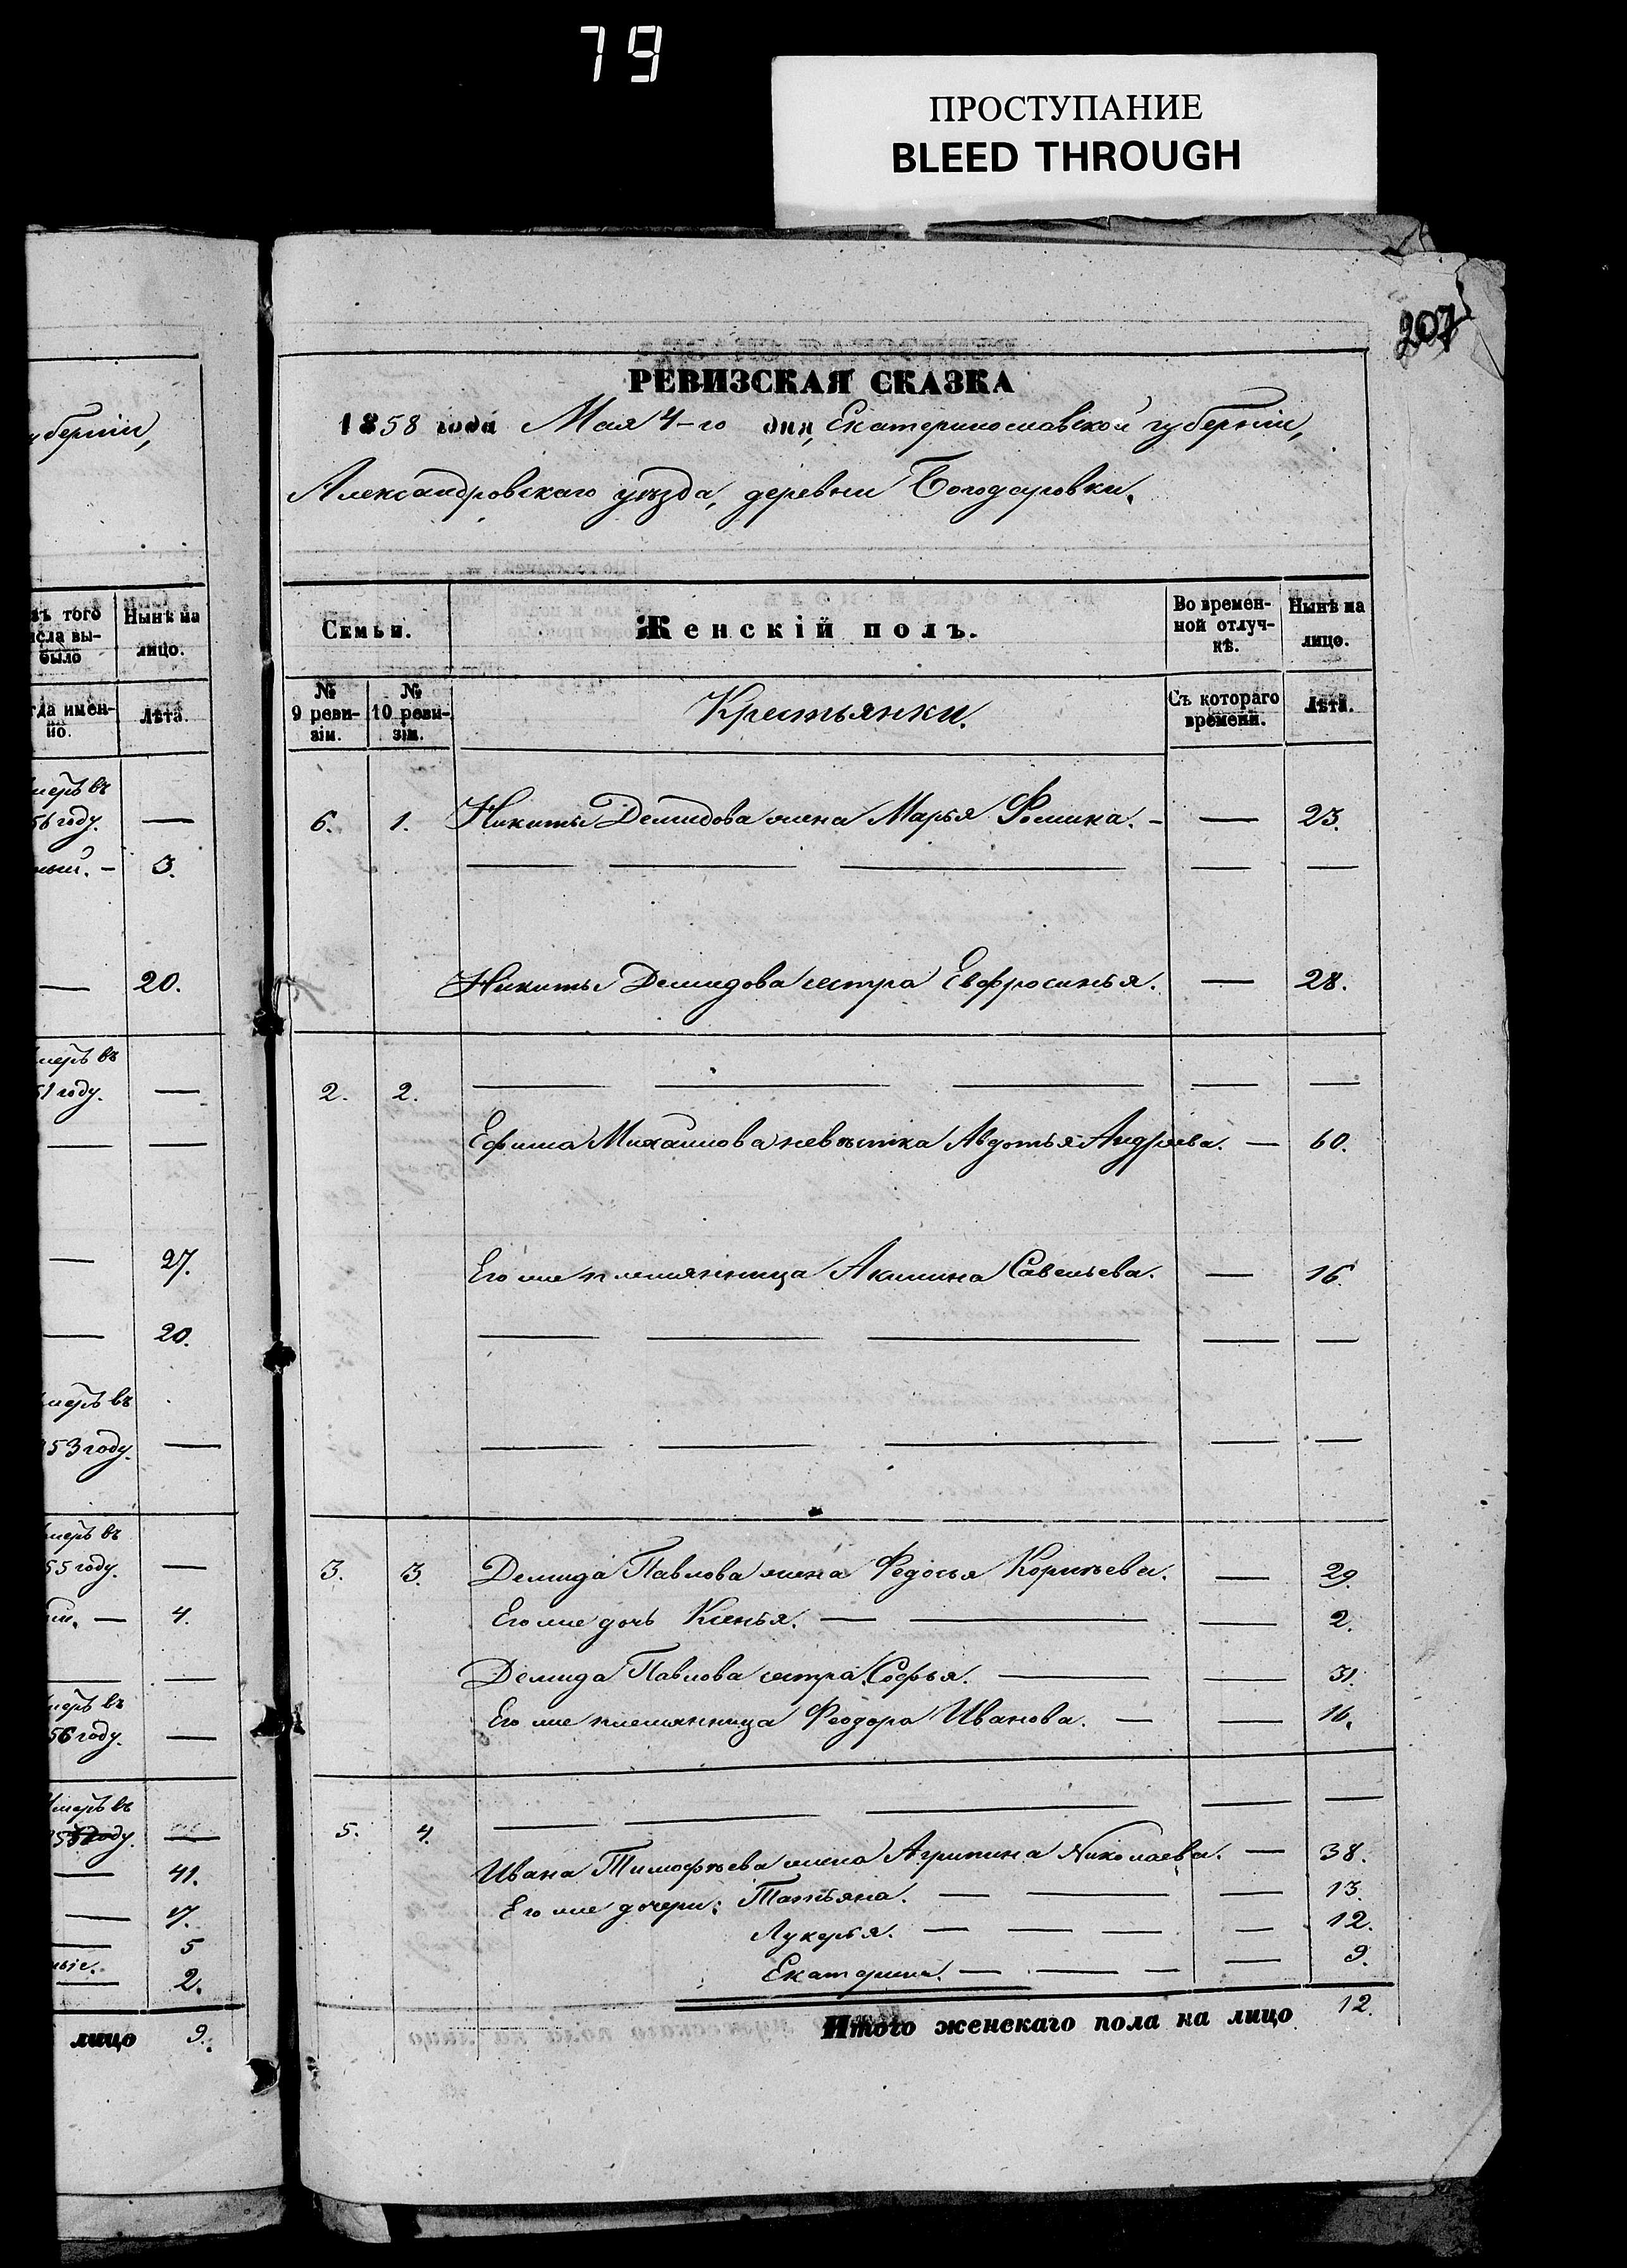 79
ПРОСТУПАНИЕ
BLEED THROUGH
207
уберніи,
РЕВИЗСКАЯ СКАЗКА
1858 года Мая 4-го дня, Екатеринославской губерніи,
Александровскаго уѣзда, деревни Богодаровки.
ъ того
исла вы-
было
Нынѣ на
лицо.
гда имен-
но.
Лѣта.
Семьи.
Женскій полъ.
Во времен-
ной отлуч-
кѣ.
Нынѣ на
лицо.
№
9 реви-
зіи.
№
10 реви-
зіи.
Крестьянки.
Съ котораго
времени.
Лѣта.
меръ въ
56 году. —
ный. — 3.
— 20.
меръ въ
51 году. —
— —
— 27.
— 20.
меръ въ
53 году. —
меръ въ
55 году. —
— 4.
— —
меръ въ
56 году. —
Умеръ въ
году. —
— 41.
— 17.
— 5
ные.
— 2.
лицо 9.
6. 1. Никиты Демидова жена Марья Фомина. — — 23.
— — — — —
Никиты Демидова сестра Евфросинья. — 28.
2. 2. — — — — —
Ефима Михайлова невѣстка Авдотья Андреева. — 60.
Его же племянница Акилина Савельева. — 16.
— — — — —
— — — — —
3. 3. Демида Павлова жена Федосья Корнѣева. — 29.
Его же дочь Ксенья. — — — 2.
Демида Павлова сестра Софья. — — 31.
Его же племянница Феодора Иванова. — — 16.
5. 4. — — — — —
Ивана Тимофѣева жена Агрипина Николаева. — 38.
Его же дочери: Татьяна. — — — 13.
Лукерья. — — — — 12.
Екатерина. — — — — 9.
Итого женскаго пола на лицо 12.